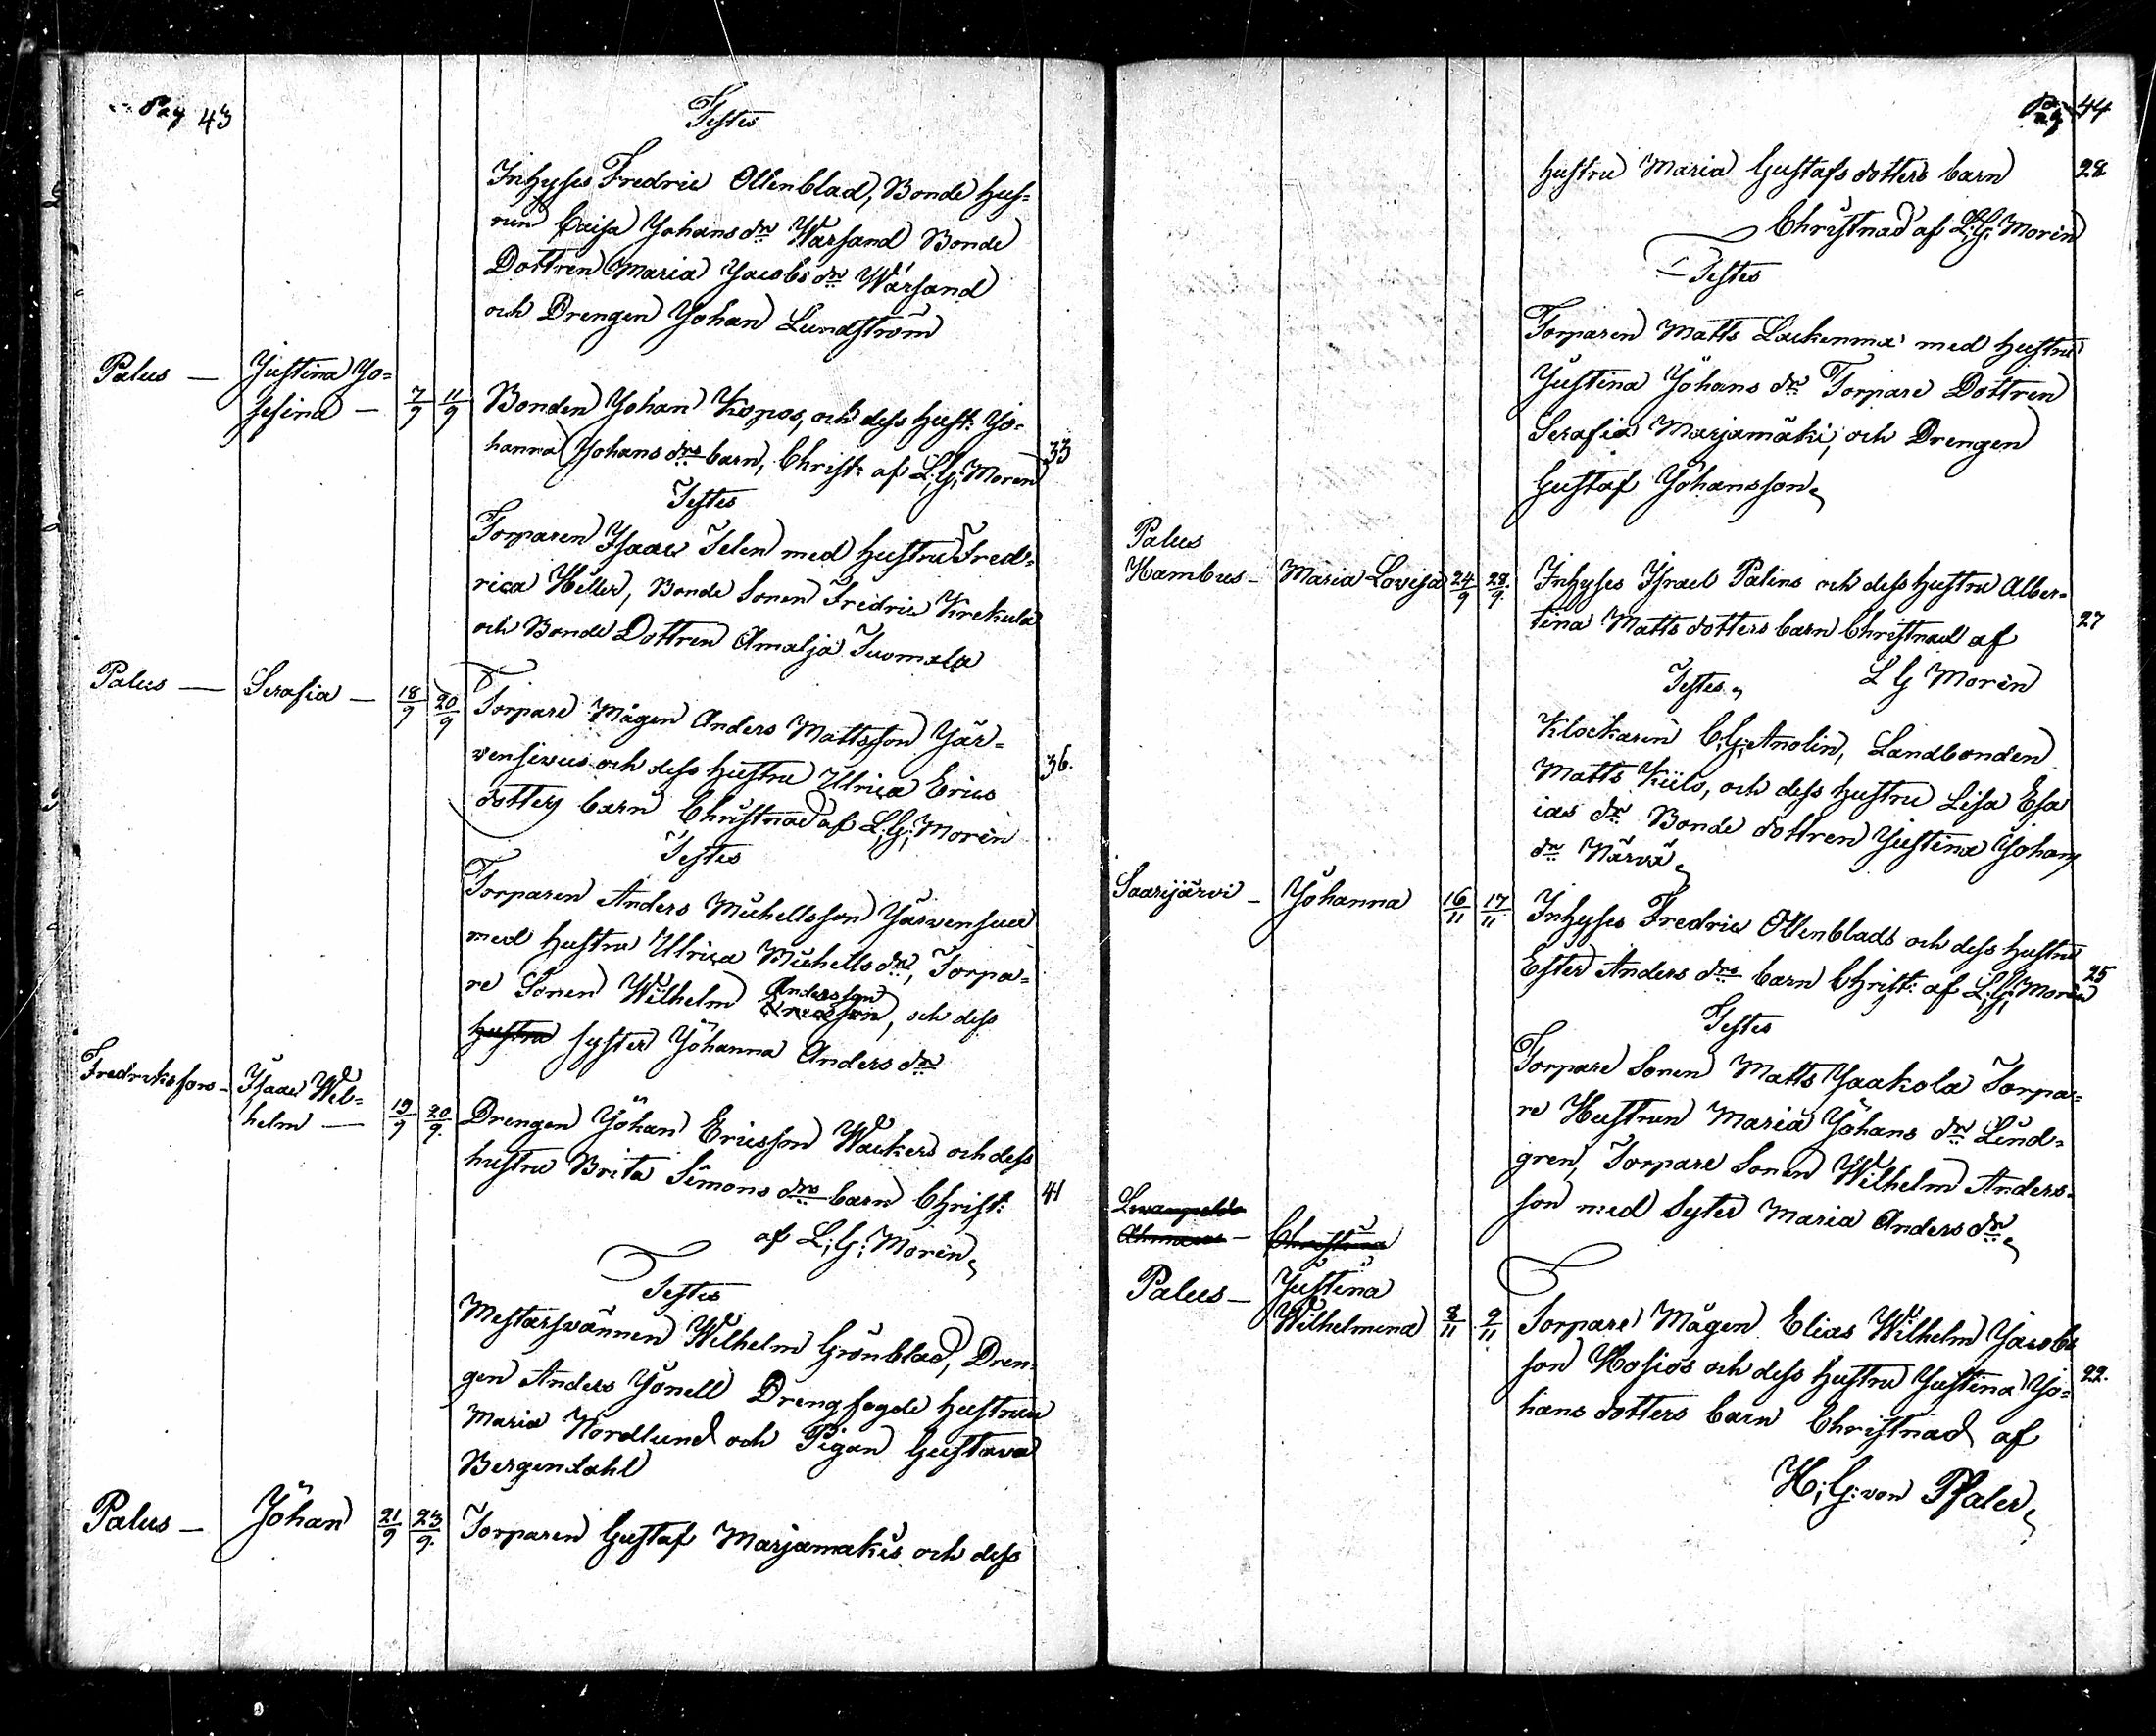 Pag 43
Testes
Inhyses Fredric Ollenblad, Bonde hus=
run Caisa Johans dr Warsand Bonde
Dottren Maria Jacobs dr Wärsand
och Drengen Johan Lundström
Palus — Justina Jo=
sefina — 7/9 11/9 Bonden Johan Kopos, och dess hust: Jo=
hanna Johans drs barn, Christ: af L:G: Morén 33
Testes
Torparen Isaac Telen med hustru Fred=
rica Heller, Bonde Sonen Fredric Krekula
och Bonde Dottren Amalja Tuomala
Palus — Serafia — 18/9 20/9 Torpare Mågen Anders Mattsson Jär=
wensivus och dess hustru Ulrica Erics 36.
dotters barn Christnad af L:G: Morén
Testes
Torparen Anders Michellsson Järvensuu
med hustru Ulrica Michells dr, Torpa=
re Sonen Wilhelm Andersson
Ericsson, och dess
hustru syster Johanna Anders dr
Fredriksfors — Isaac Wil=
helm — 19/9 20/9. Drengen Johan Ericsson Wackers och dess
hustru Brita Simons drs barn Christ: 41
af L:G: Morén
Testes
Mestarsvännen Wilhelm Grönblad, Dren=
gen Anders Jonell Drengfogde hustrun
Maria Nordlund och Pigan Gustava
Bergendahl
Palus — Johan 21/9 23/9. Torparen Gustaf Marjamäkis och dess
Pag 44
hustru Maria Gustafs dotters barn 28
Christnad af L:G: Morén
Testes
Torparen Matts Lackenma med hustru
Justina Johans dr Torpare Dottren
Serafia Marjamäki, och Drengen
Gustaf Johansson
Palus
Hambus — Maria Lovisa 24/9 28/9. Inhyses Israel Palins och dess hustru Alber=
tina Matts dotters barn Christnad af 27
L G Morén
Testes
Klockaren C:G: Anolin, Landbonden
Matts Kiilo, och dess hustru Lisa Esa
ias dr Bonde dottren Justina Johans
dr Närvä
Saarijärvi — Johanna 16/11 17/11. Inhyses Fredric Ollenblads och dess hustru
Ester Anders drs barn Christ: af L:G: Morén 25
Testes
Torpare Sonen Matts Jaakola Torpa=
re Hustrun Maria Johans dr Lind=
gren, Torpare Sonen Wilhelm Anders=
son med Syster Maria Anders dr
Christina
Palus — Justina
Wilhelmina 8/11 9/11. Torpare Mågen Elias Wilhelm Jacobs
son Hosios och dess hustru Justina Jo= 22.
hans dotters barn Christnad af
H:G: von Pfaler